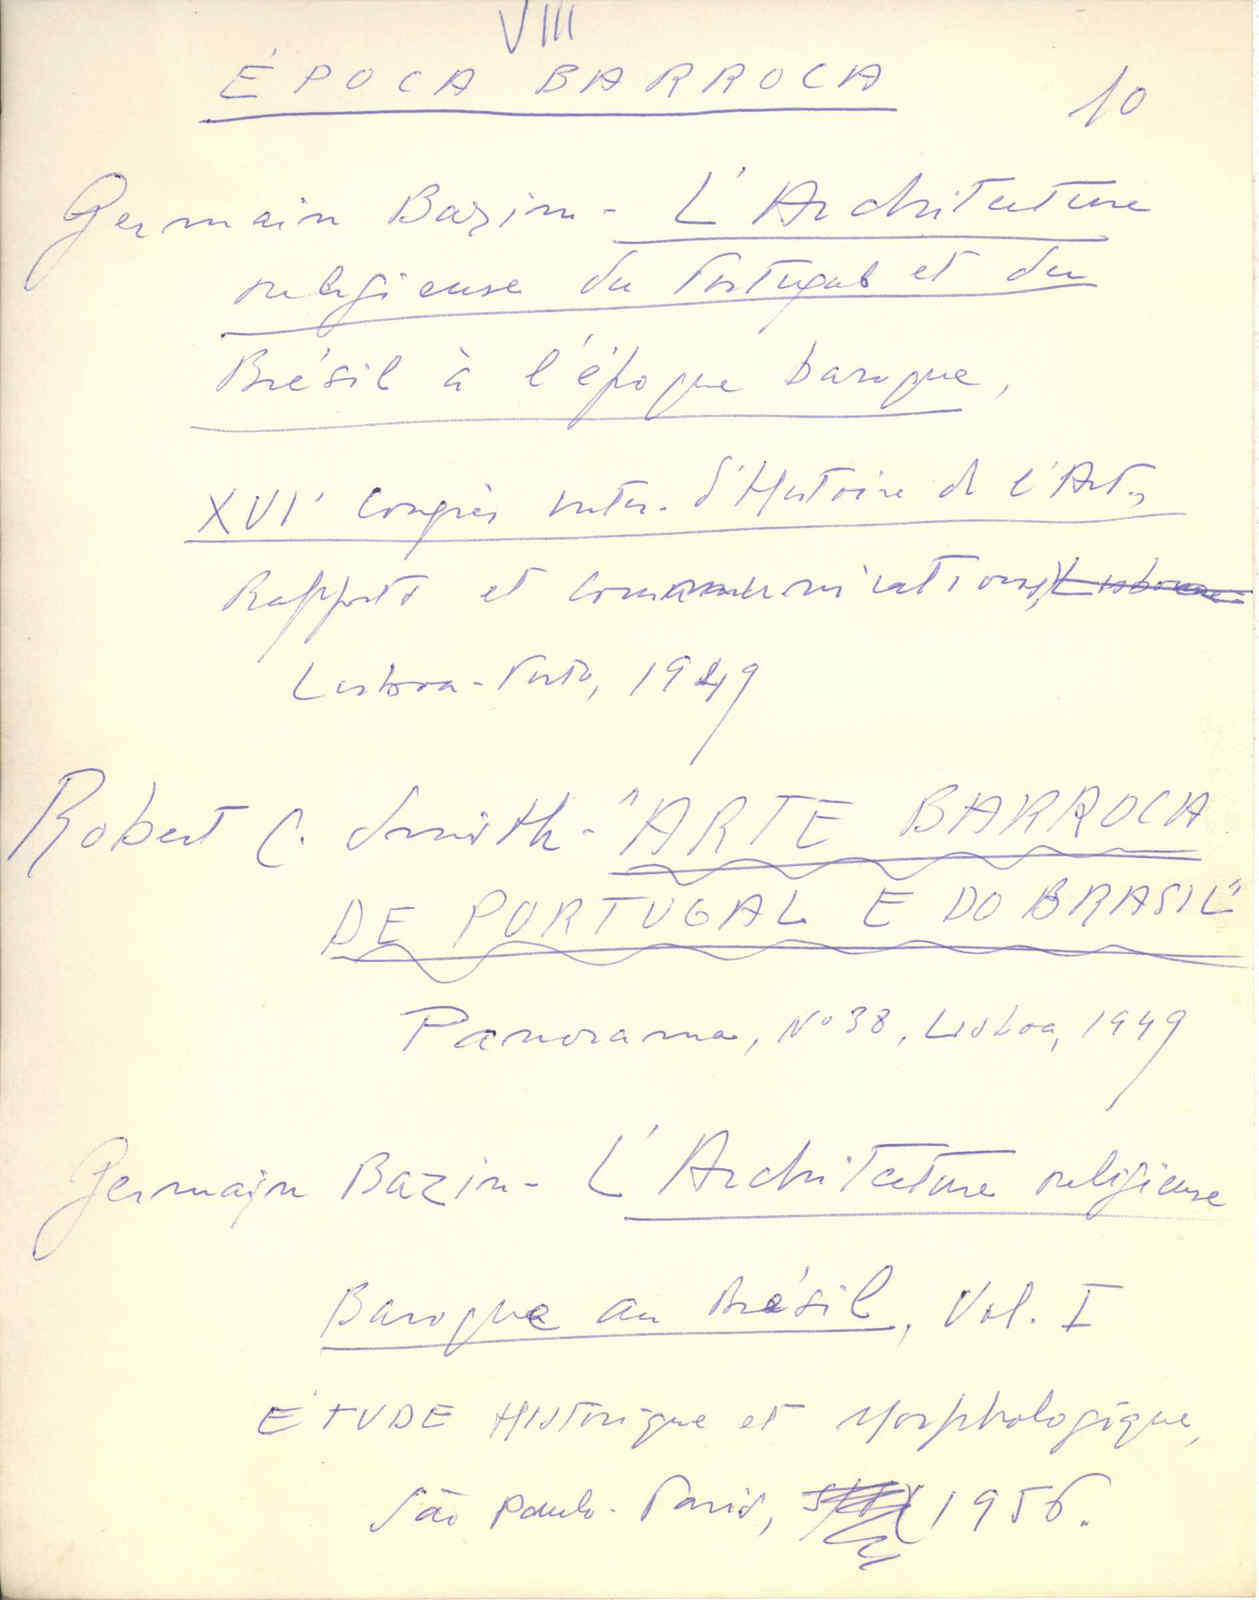 VIII
ÉPOCA BARROCA
10
Germain Bazin - L'Architecture
religieuse du Portugal et du
Brésil à l'époque baroque,
XVI' Congrès Inter. d'Histoire de l'Art,
Rapports et Communications, Lisbonne
Lisboa - Porto, 1949
Robert C. Smith - "ARTE BARROCA
DE PORTUGAL E DO BRASIL"
Panorama, Nº 38, Lisboa, 1949
Germain Bazin - L'Architecture religieuse
Baroque au Brésil, Vol. I
ÉTUDE Historique et Morphologique,
São Paulo - Paris, 1956.